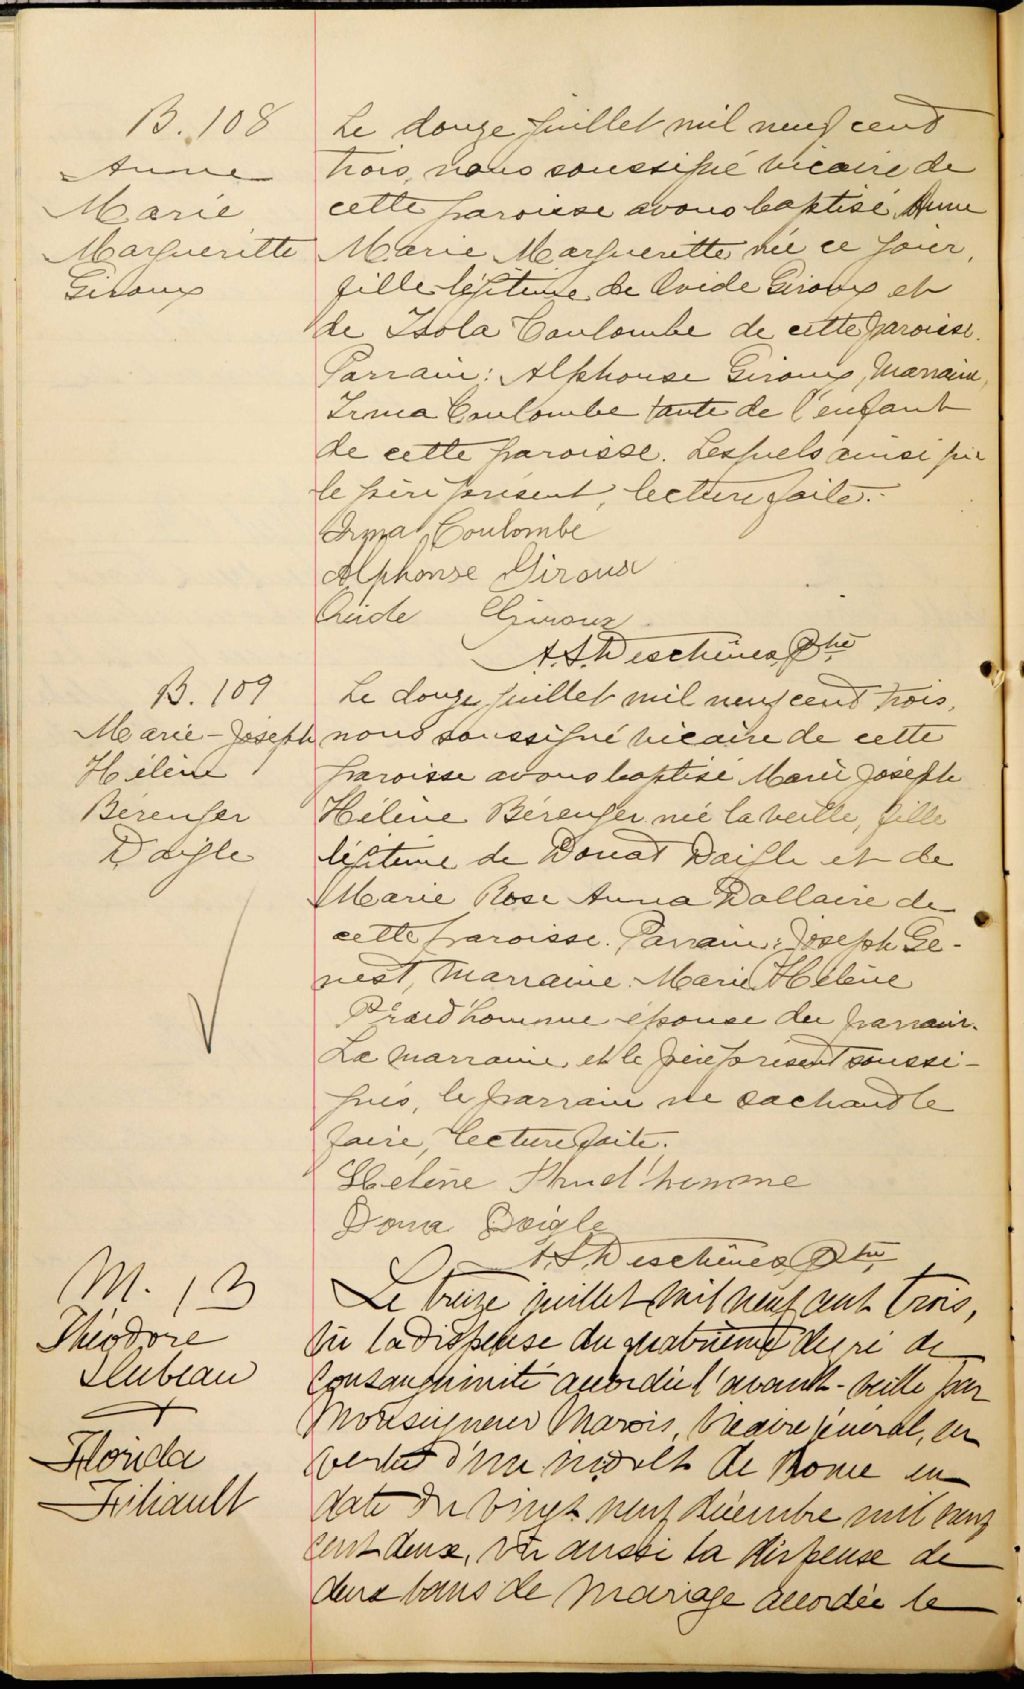 B. 108
Anna
Marie
Margueritte
Giroux
Le douze juillet mil neuf cent
trois, nous soussigné vicaire de
cette paroisse avons baptisé Anna
Marie Margueritte née ce jour,
fille légitime de Ovide Giroux et
de Isola Coulombe de cette paroisse.
Parrain: Alphonse Giroux, Marraine,
Irma Coulombe tante de l'enfant
de cette paroisse. Lesquels ainsi que
le père présent, lecture faite.-
Irma Coulombe
Alphonse Giroux
Ovide Giroux
A.S. Deschênes, Ptre
B. 109
Marie-Joseph
Hélène
Bérenger
Daigle
Le douze juillet mil neuf cent trois,
nous soussigné vicaire de cette
paroisse avons baptisé Marie Joseph
Hélène Bérenger née la veille, fille
légitime de Donat Daigle et de
Marie Rose Anna Dallaire de
cette paroisse. Parrain: Joseph Ge-
nest, Marraine Marie Hélène
Prud'homme épouse du parrain.
La marraine et le père présent soussi-
gnés, le parrain ne sachant le
faire, lecture faite.
Hélène Prud'homme
Dona Daigle
A.S. Deschênes, Ptre
M. 13
Théodore
&
Florida
Filiault
Le treize juillet mil neuf cent trois,
Vu la dispense du quatrième degré de
Consanguinité accordée l'avant-veille par
Monseigneur Marois, Vicaire général, en
vertu d'un indult de Rome en
date du vingt neuf décembre mil neuf
cent deux, vu aussi la dispense de
deux bans de mariage accordée le